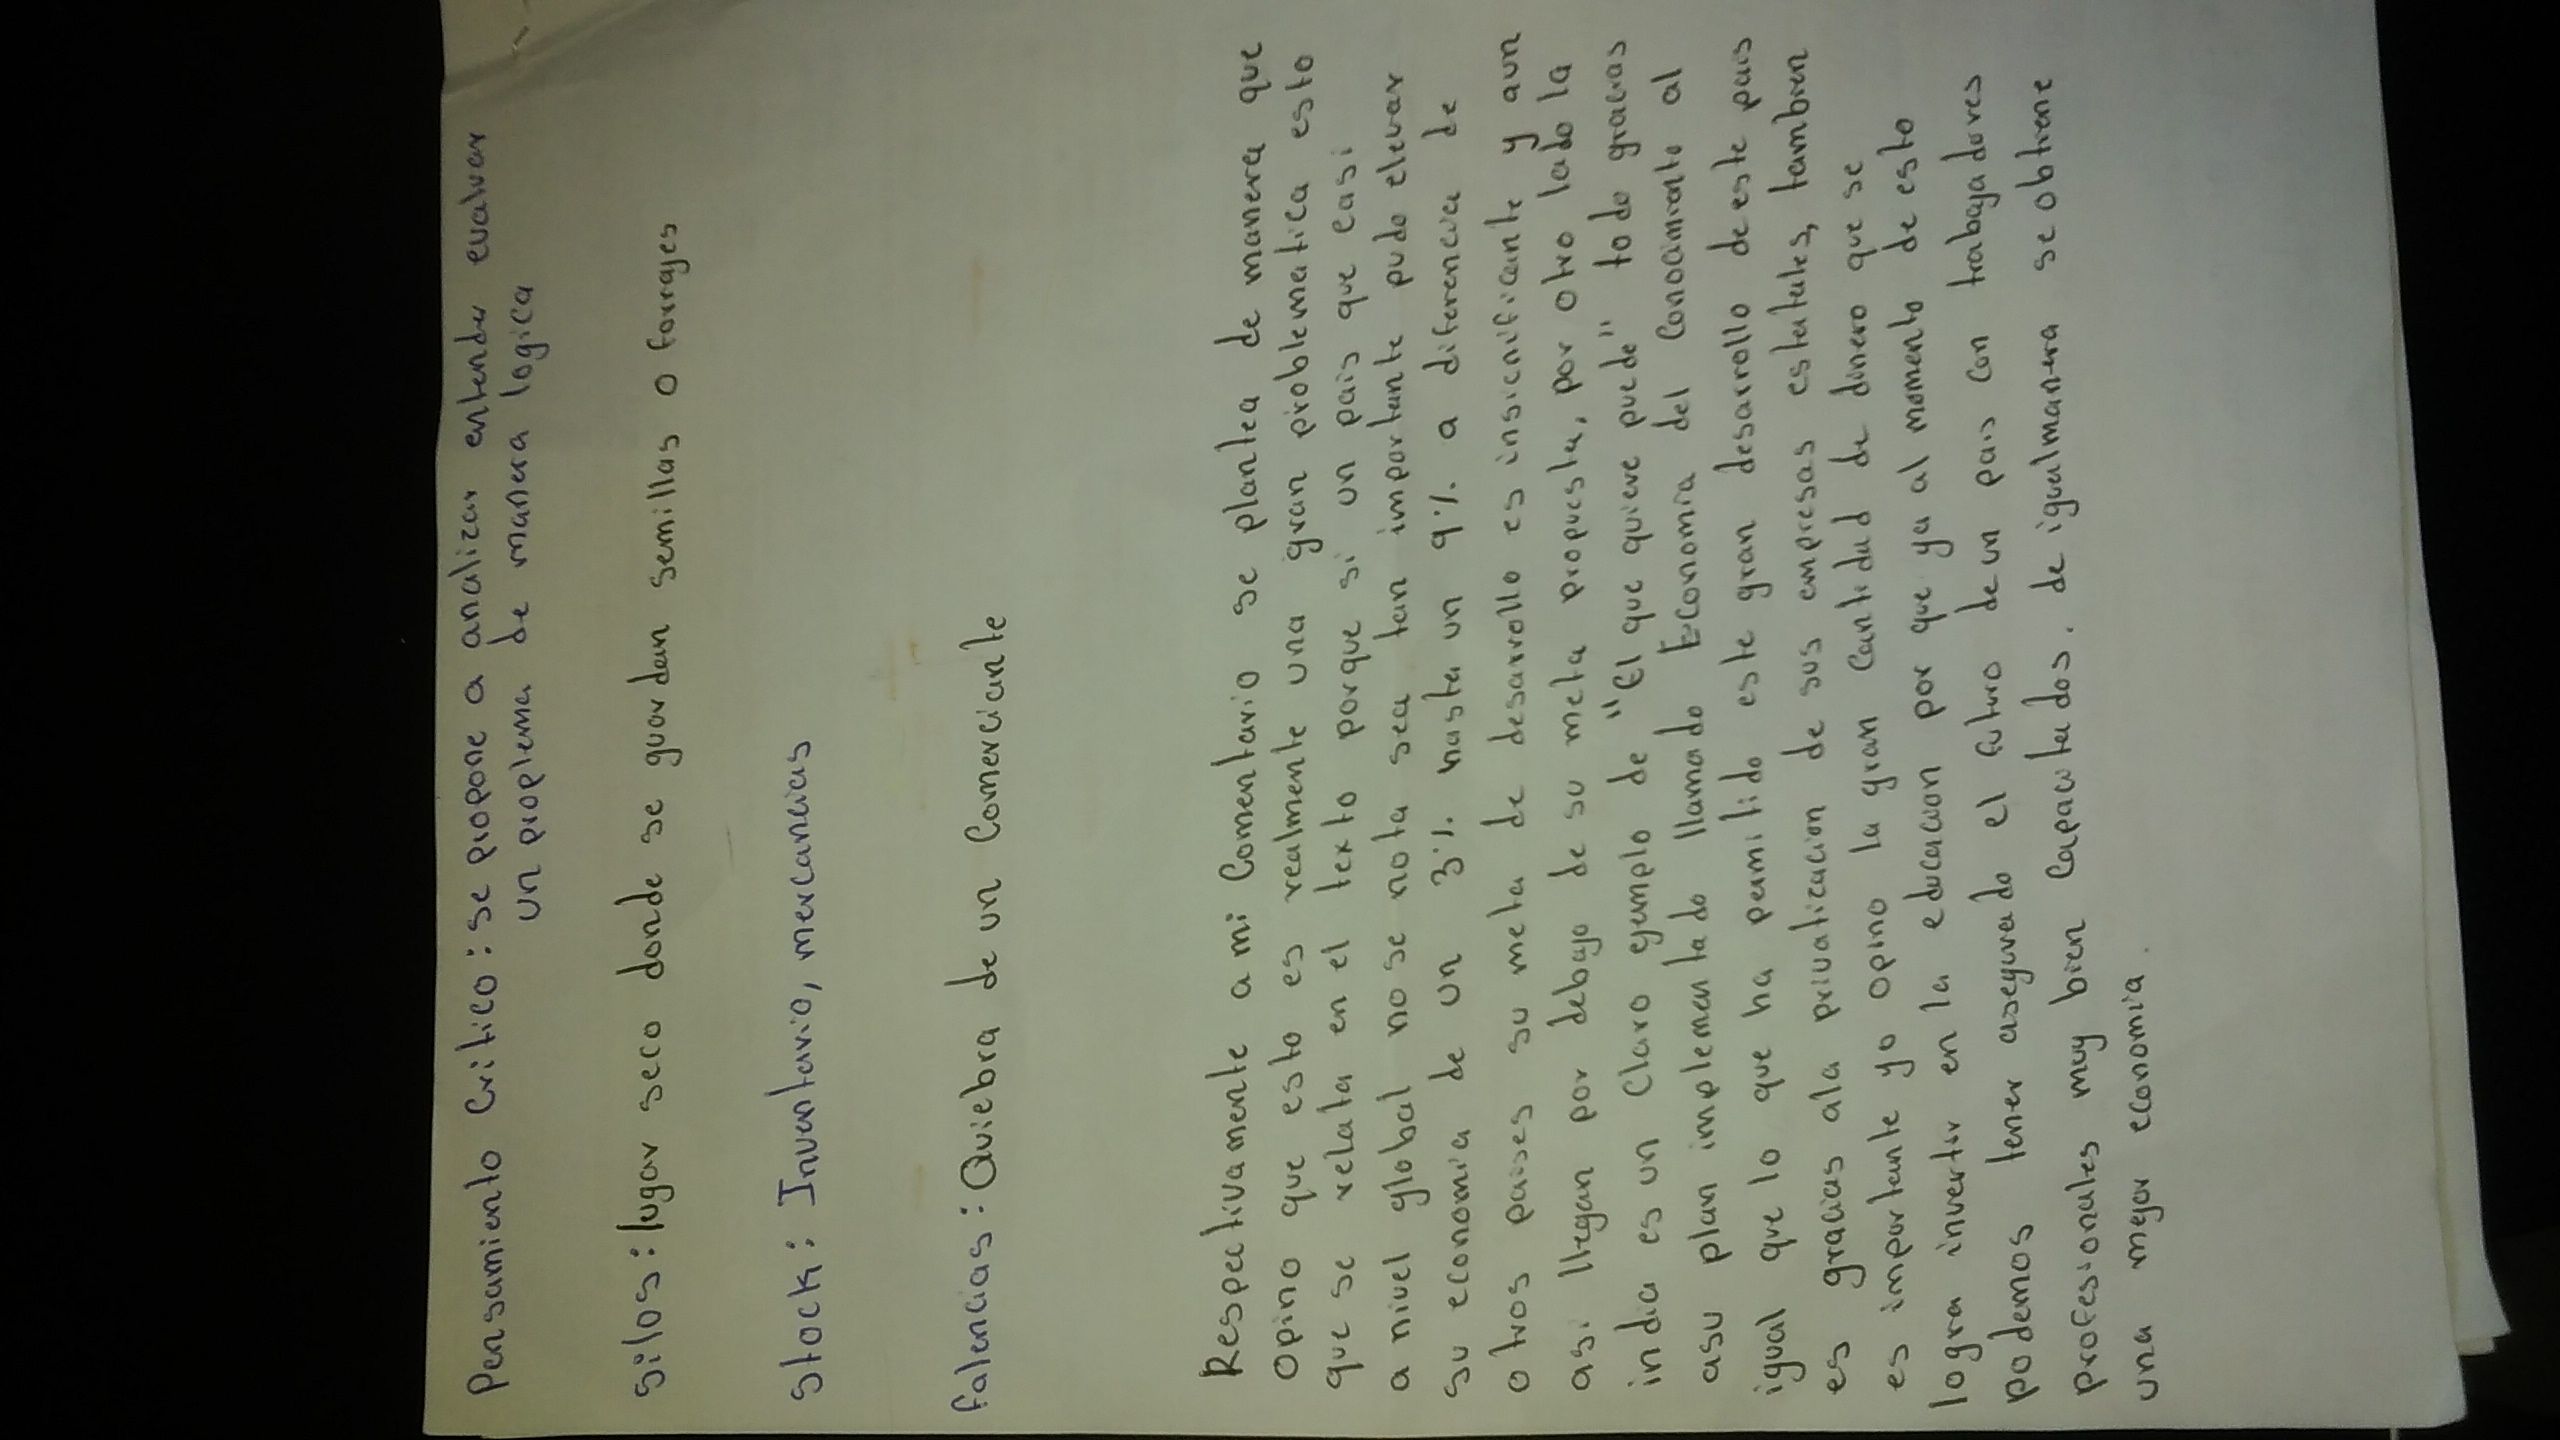 Pensamiento Critico: se propone a analizar entender evaluar
un proplema de manera logica
silos: lugar seco donde se guardan semillas o forrajes
stock: Inventario, mercancias
falencias: Quiebra de un Comerciante
Respectivamente a mi Comentario se plantea de manera que
Opino que esto es realmente una gran problematica esto
que se relata en el texto porque si un pais que casi
a nivel global no se nota sea tan importante pudo elevar
su economia de un 3% hasta un 9% a diferencia de
otros paises su meta de desarrollo es insicnificante y aun
asi llegan por debajo de su meta propuesta, por otro lado la
india es un Claro ejemplo de "El que quiere puede" todo gracias
asu plan implementado llamado Economia del Conocimiento al
igual que lo que ha permitido este gran desarrollo de este pais
es gracias ala privatizacion de sus empresas estatales, tambien
es importante yo opino la gran Cantidad de dinero que se
logra invertir en la educacion por que ya al momento de esto
podemos tener asegurado el futuro de un pais con trabajadores
profesionales muy bien Capacitados. de igualmanera se obtiene
una mejor economia.